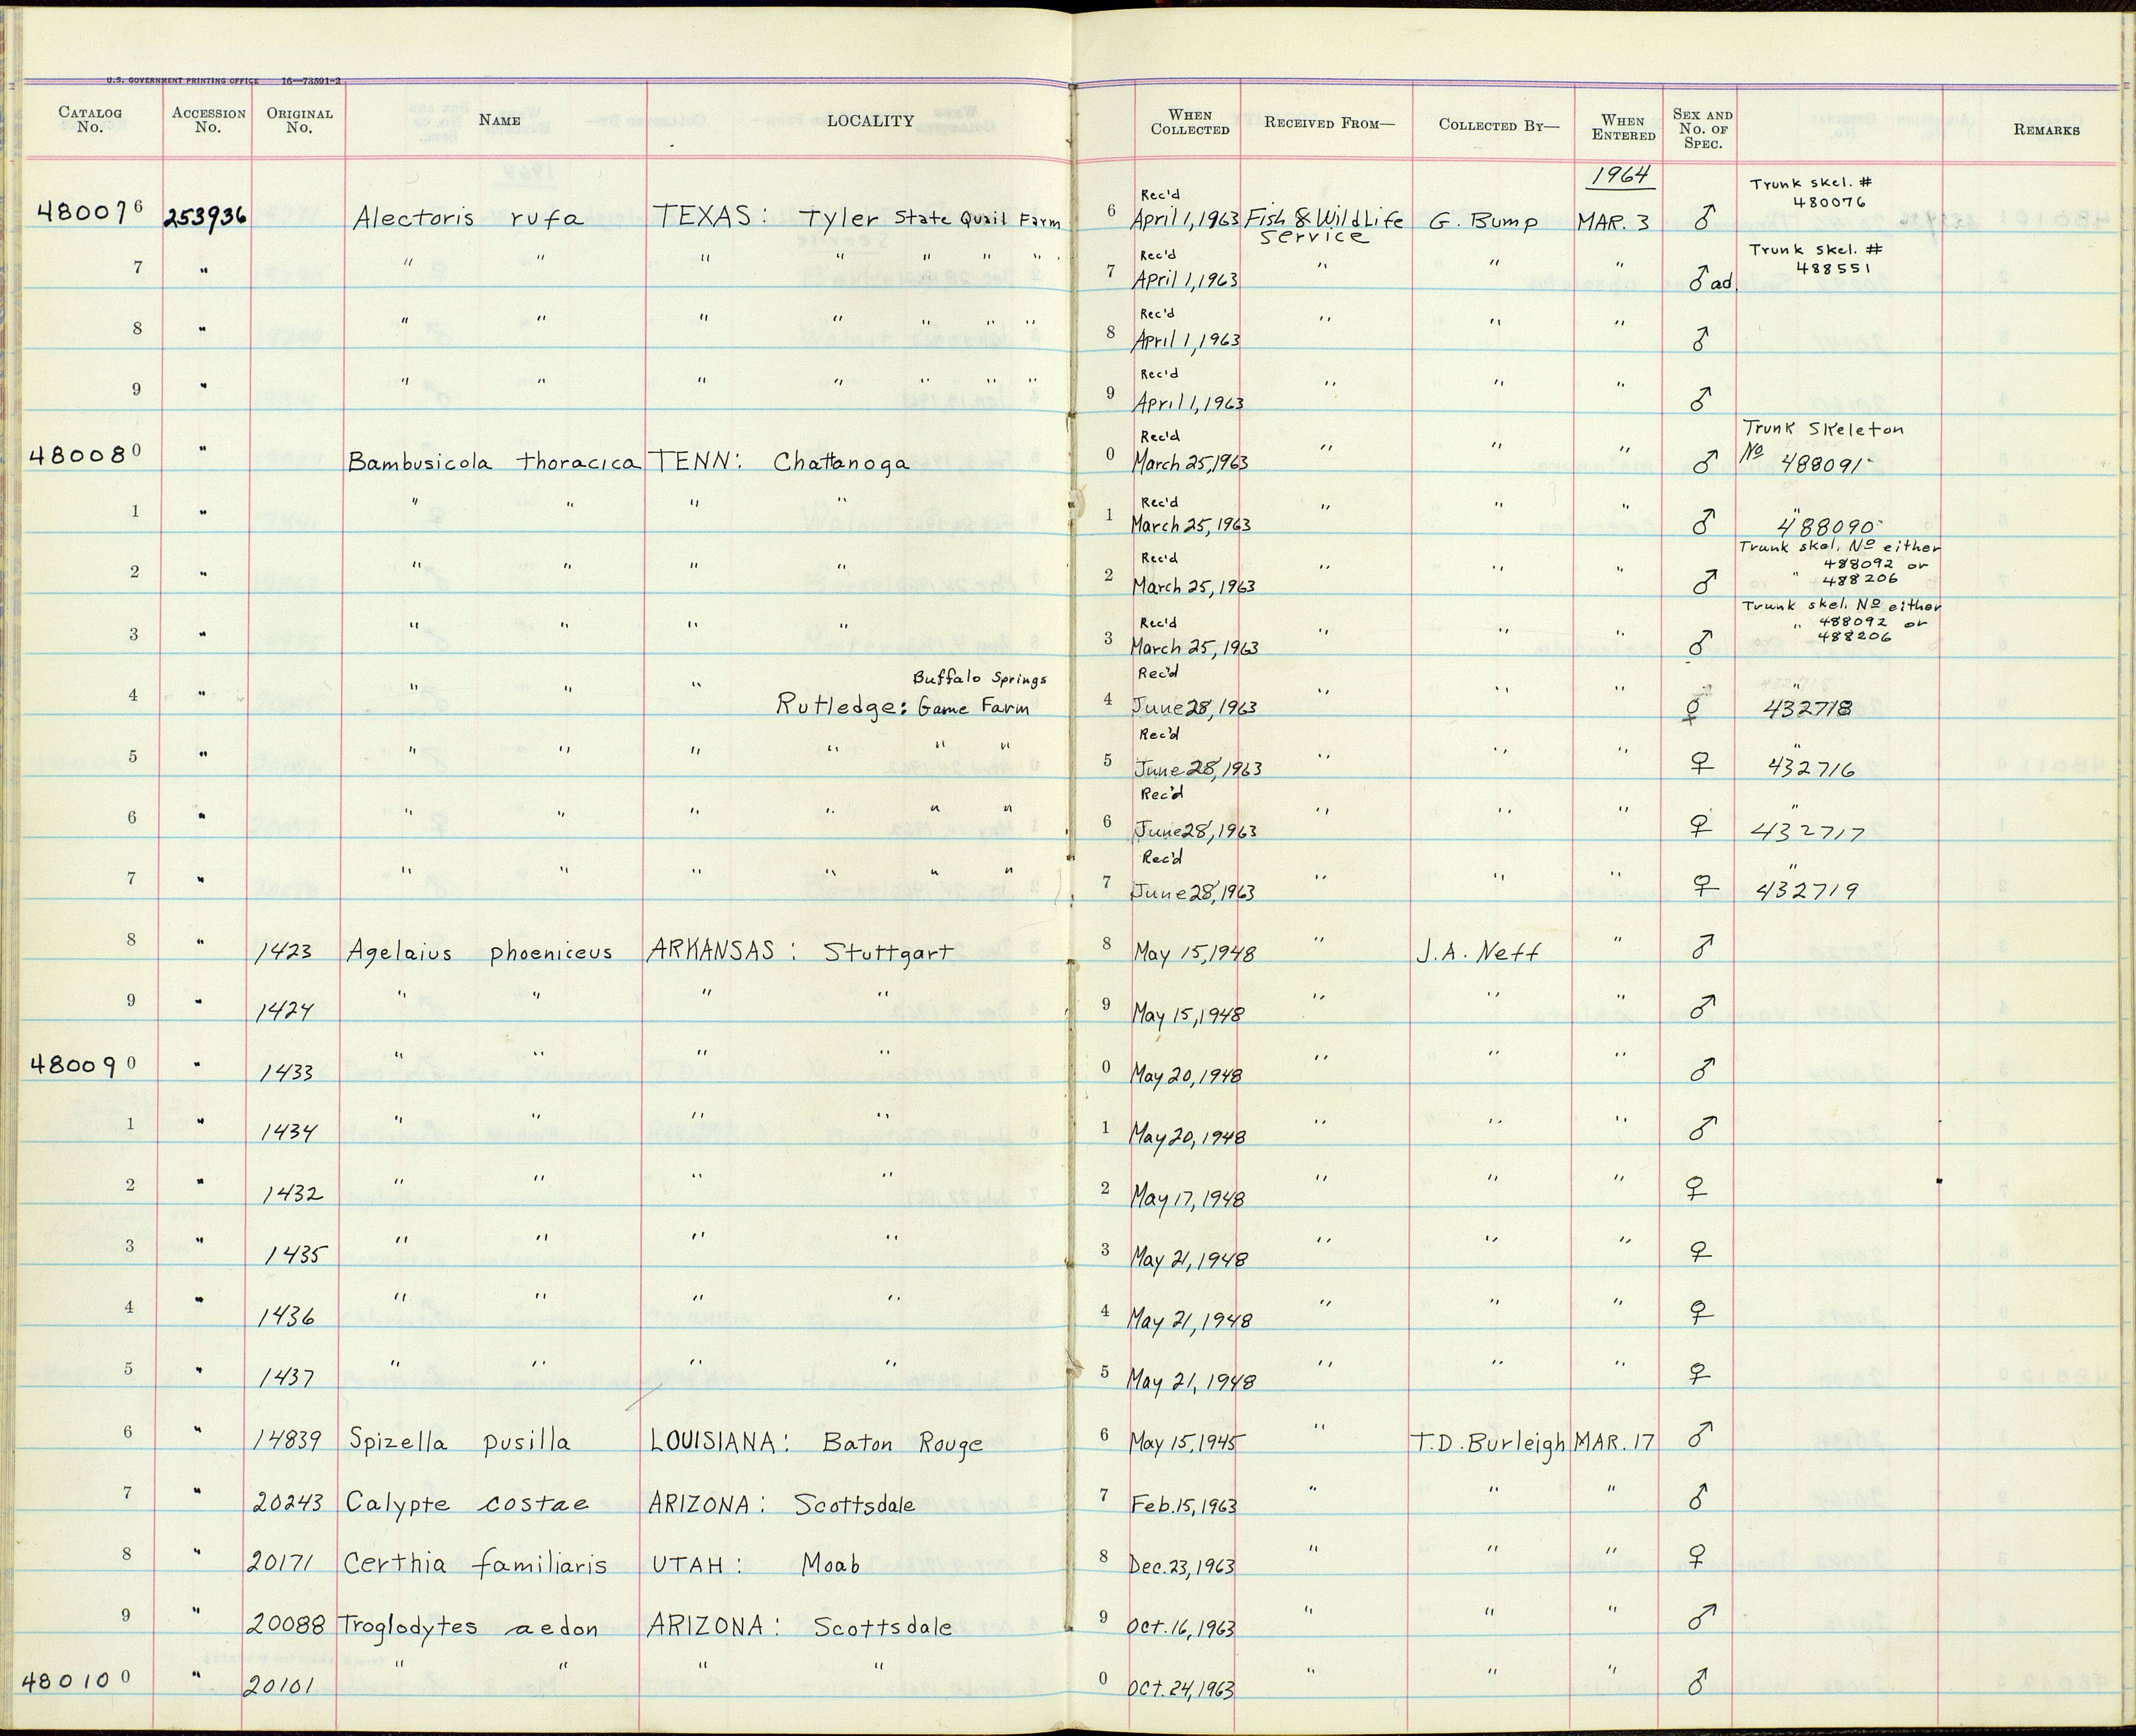 U.S. GOVERNMENT PRINTING OFFICE 16—73591-2
CATALOG No. ACCESSION No. ORIGINAL No. NAME LOCALITY WHEN COLLECTED RECEIVED FROM— COLLECTED BY— WHEN ENTERED SEX AND No. OF SPEC. REMARKS
1964
480076 253936 Alectoris rufa TEXAS: Tyler State Quail Farm 6 Rec'd April 1, 1963 Fish & Wildlife Service G. Bump MAR. 3 ♂ Trunk skel. # 480076
7 " " " " " " " " 7 Rec'd April 1, 1963 " " " ♂ ad. Trunk skel. # 488551
8 " " " " " " " " 8 Rec'd April 1, 1963 " " " ♂
9 " " " " " " " " 9 Rec'd April 1, 1963 " " " ♂
480080 " Bambusicola thoracica TENN: Chattanoga 0 Rec'd March 25, 1963 " " " ♂ Trunk Skeleton No 488091
1 " " " " " 1 Rec'd March 25, 1963 " " " ♂ " 488090
2 " " " " " 2 Rec'd March 25, 1963 " " " ♂ Trunk skel. No either 488092 or " 488206
3 " " " " " 3 Rec'd March 25, 1963 " " " ♂ Trunk skel. No either " 488092 or 488206
4 " " " " Rutledge: Buffalo Springs Game Farm 4 Rec'd June 28, 1963 " " " ♀ " 432718
5 " " " " " " " 5 Rec'd June 28, 1963 " " " ♀ " 432716
6 " " " " " " " 6 Rec'd June 28, 1963 " " " ♀ " 432717
7 " " " " " " " 7 Rec'd June 28, 1963 " " " ♀ " 432719
8 " 1423 Agelaius phoeniceus ARKANSAS: Stuttgart 8 May 15, 1948 " J.A. Neff " ♂
9 " 1424 " " " " 9 May 15, 1948 " " " ♂
480090 " 1433 " " " " 0 May 20, 1948 " " " ♂
1 " 1434 " " " " 1 May 20, 1948 " " " ♂
2 " 1432 " " " " 2 May 17, 1948 " " " ♀
3 " 1435 " " " " 3 May 21, 1948 " " " ♀
4 " 1436 " " " " 4 May 21, 1948 " " " ♀
5 " 1437 " " " " 5 May 21, 1948 " " " ♀
6 " 14839 Spizella pusilla LOUISIANA: Baton Rouge 6 May 15, 1945 " T.D. Burleigh MAR. 17 ♂
7 " 20243 Calypte costae ARIZONA: Scottsdale 7 Feb. 15, 1963 " " " ♂
8 " 20171 Certhia familiaris UTAH: Moab 8 Dec. 23, 1963 " " " ♀
9 " 20088 Troglodytes aedon ARIZONA: Scottsdale 9 Oct. 16, 1963 " " " ♂
480100 " 20101 " " " " 0 Oct. 24, 1963 " " " ♂